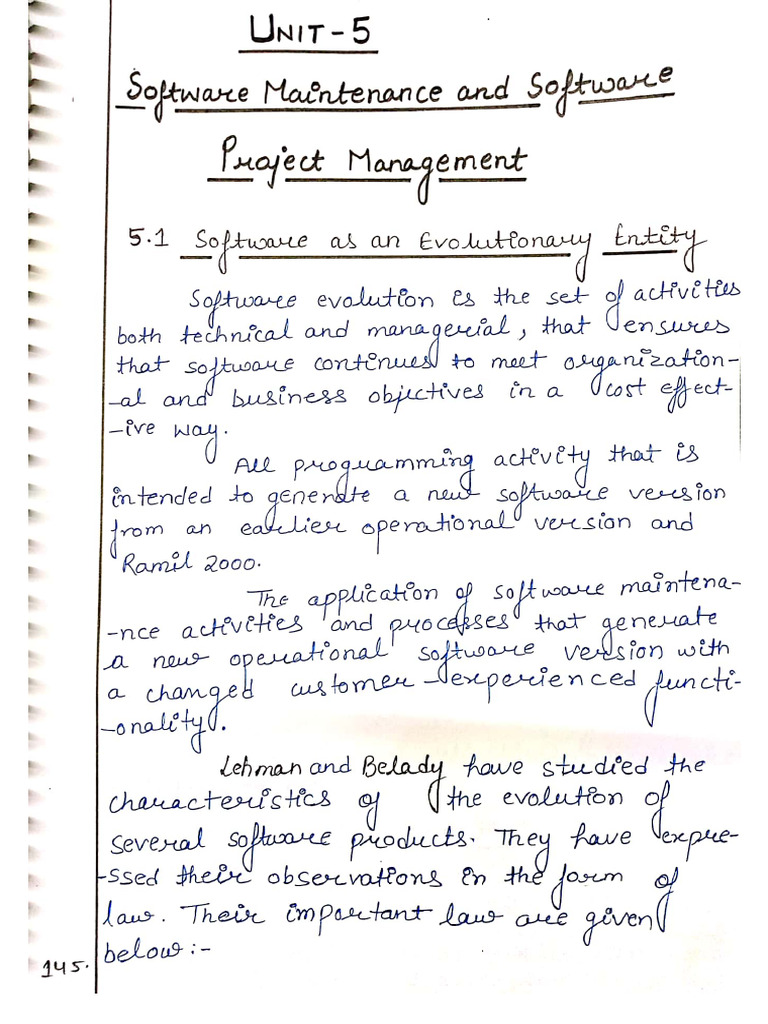 UNIT-5
Software Maintenance and Software
Project Management
5.1 Software as an Evolutionary Entity
Software evolution is the set of activities
both technical and managerial, that ensures
that software continues to meet organization-
-al and business objectives in a cost effect-
-ive way.
All programming activity that is
intended to generate a new software version
from an earlier operational version and
Ramil 2000.
The application of software maintena-
-nce activities and processes that generate
a new operational software version with
a changed customer-experienced functi-
-onality.
Lehman and Belady have studied the
characteristics of the evolution of
several software products. They have expre-
-ssed their observations in the form of
law. Their important law are given
below :-
145.